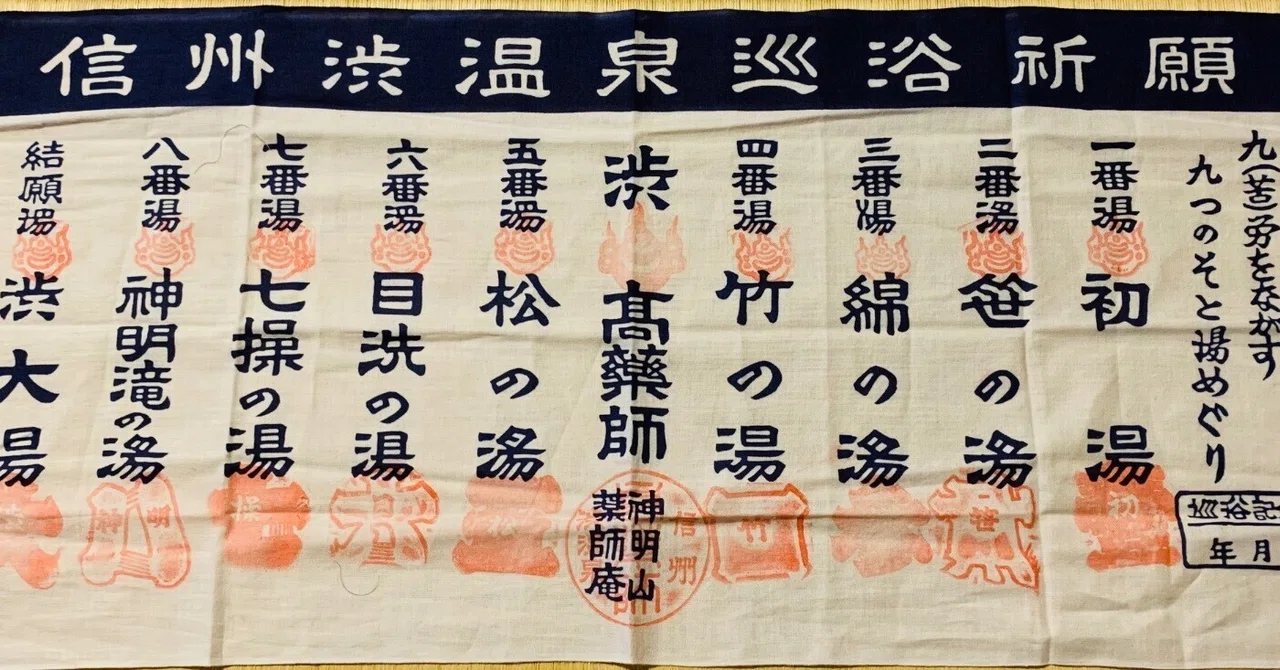 信州渋温泉巡浴祈願
九(苦)労をながす
九つのそと湯めぐり
年 月
一番湯
初湯
初
二番湯
笹の湯
笹
三番湯
綿の湯
四番湯
竹の湯
竹
渋高薬師
神明山
薬師庵
信州
五番湯
松の湯
松
六番湯
目洗の湯
七番湯
七操の湯
操
八番湯
神明滝の湯
神明
結願湯
渋大湯